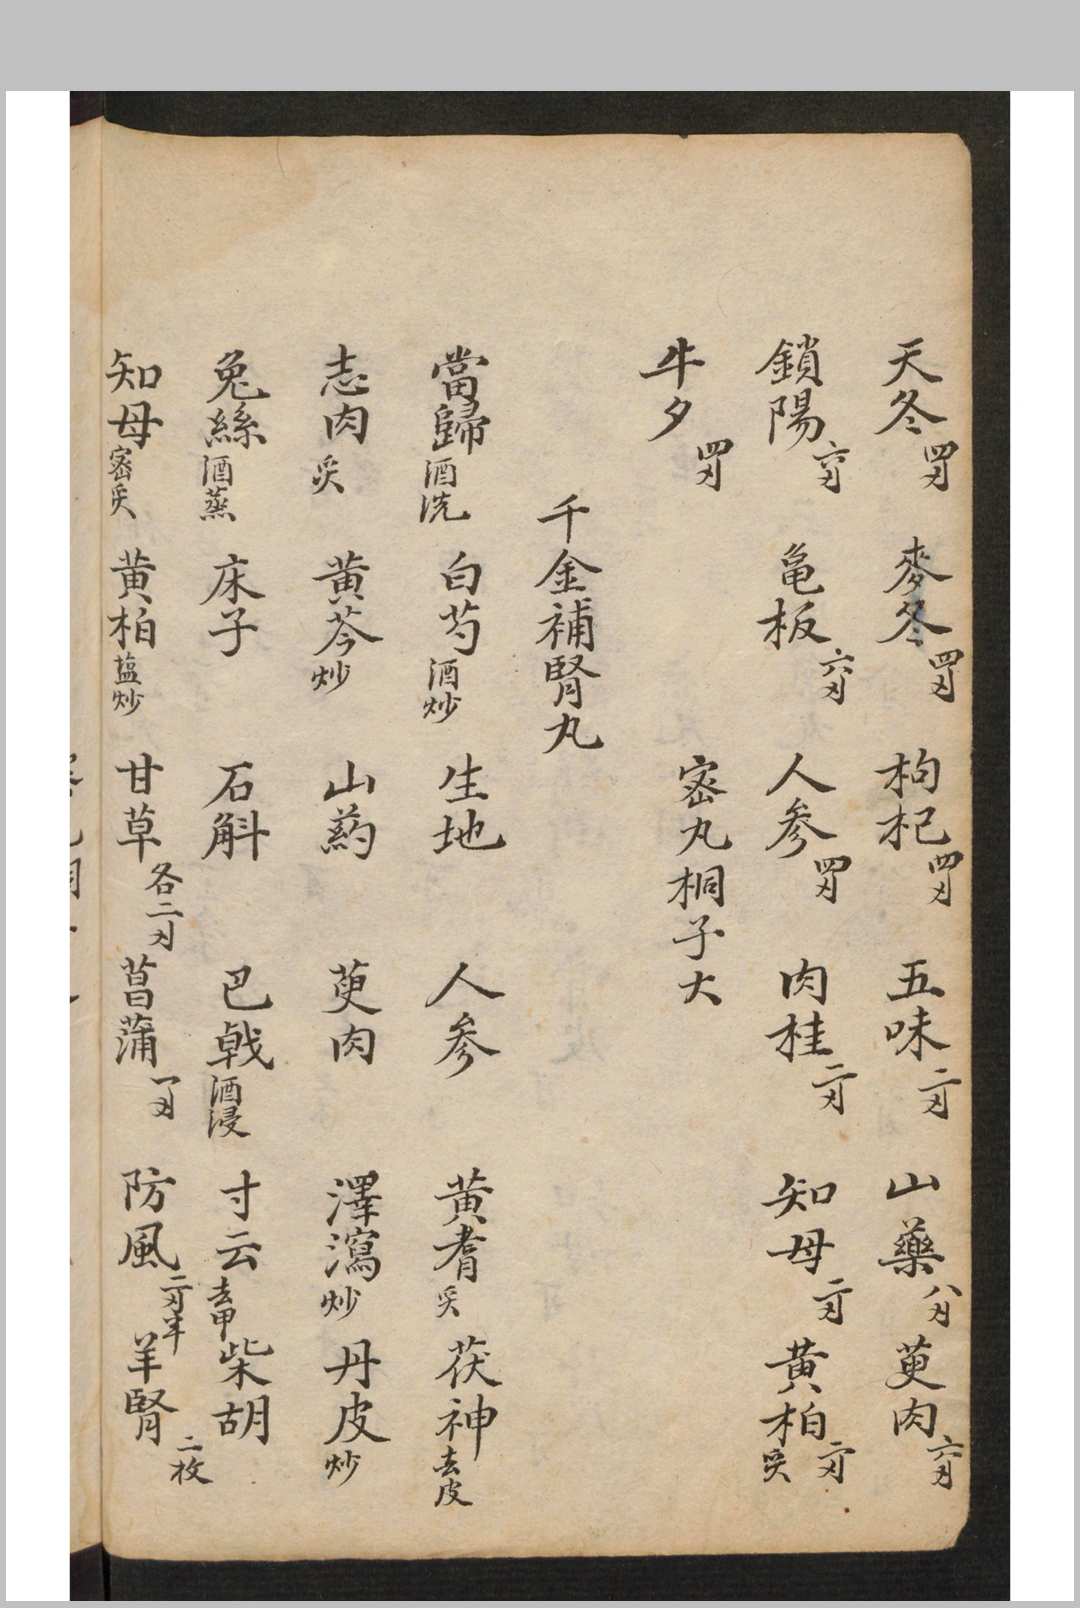 天冬四刄 麥冬四刄 枸杞四刄 五味二刄 山藥八刄 萸肉六刄
鎖陽六刄 亀板六刄 人参四刄 肉桂二刄 知母二刄 黄柏炙二刄
牛夕四刄 宻丸桐子大
千金補腎丸
當歸酒洗 白芍酒炒 生地 人参 黄耆炙 茯神去皮
志肉炙 黄芩炒 山葯 萸肉 澤瀉炒 丹皮炒
兔絲酒蒸 床子 石斛 巴戟酒浸 寸云去甲 柴胡
知母宻炙 黄柏塩炒 甘草各二刄 菖蒲一刄 防風二刄半 羊腎二枚